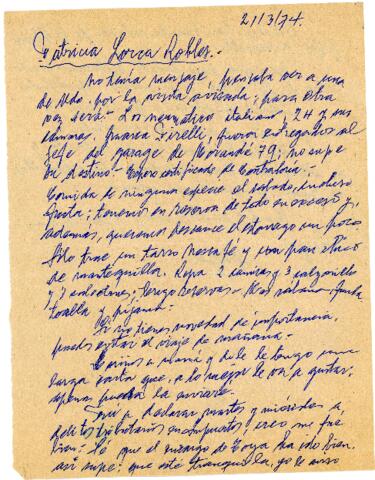 21/3/74.
Patricia Lorca Robles.
no tenía mensaje, pensaba ver a una
de Uds. por la visita ; para otra
vez será. Los neumáticos italianos, 24 y sus
cámaras, marca Pirelli, fueron entregados al
jefe del garage de Morandé 79, no supe
su destino. Espero certificado de Contraloría.
Comida de ninguna especie el sábado, incluso
fruta; tenemos en reserva de todo en exceso y,
además, queremos descanse el estómago un poco
Sólo trae un tarro nescafé y un pan chico
de mantequilla. Ropa 2 camisas y 3 calzoncillos
y 3 calcetines; tengo reservas.
toalla y pijama.
Si no tienes novedad de importancia,
puedes evitar el viaje de mañana.
Cariños a mamá y dile le tengo una
larga carta que, a lo mejor le va a gustar,
apenas pueda la enviaré.
Fui a declarar, martes y miércoles a
delitos tributarios en impuestos, creo me fue
bien. Sé que el encargo de ha ido bien,
así supe; que esté tranquila, yo le aviso